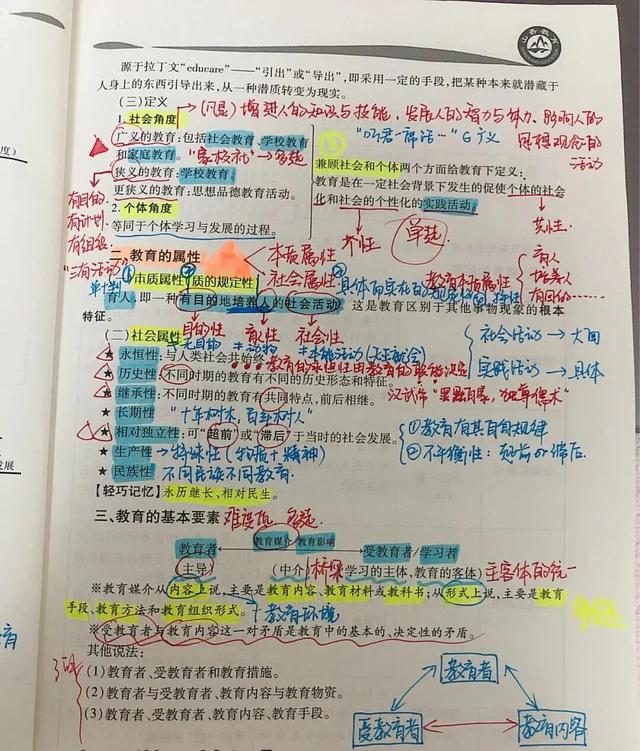 山香教育
源于拉丁文“educare”——“引出”或“导出”，即采用一定的手段，把某种本来就潜藏于
人身上的东西引导出来，从一种潜质转变为现实。
(三)定义
1. 社会角度
(问是)增进人的知识与技能，发展人的智力与体力、影响人的
思想观念的
活动
广义的教育：包括社会教育、学校教育
和家庭教育。“家校社”→多选
“听君一席话…” G 广义
狭义的教育：学校教育。
更狭义的教育：思想品德教育活动。
2. 个体角度
等同于个体学习与发展的过程。
兼顾社会和个体两个方面给教育下定义：
教育是在一定社会背景下发生的促使个体的社会
化和社会的个性化的实践活动。
个性
单选
共性
有目的.
有计划.
有组织.
“三有活动”
单+判
二、教育的属性
本质属性
社会属性
(一)本质属性(质的规定性)
具体而实在的
育人，即一种有目的地培养人的社会活动。这是教育区别于其他事物现象的根本
特征。
教育本质属性
育人
培养人
有目的…
目的性
育性
社会性
无目的
≠动物
≠本能活动
(二)社会属性
★永恒性：与人类社会共始终
教育的永恒性由教育的职能决定
★历史性：不同时期的教育有不同的历史形态和特征。
★继承性：不同时期的教育有共同特点，前后相继。
汉武帝“罢黜百家，独尊儒术”
★长期性 “十年树木，百年树人”
★相对独立性：可“超前”或“滞后”于当时的社会发展。
①教育有其自身规律
②不平衡性：超前or滞后
★生产性→特殊性(物质+精神)
★民族性 不同民族不同教育.
社会活动→大面
实践活动→具体
【轻巧记忆】永历继长、相对民生。
三、教育的基本要素 难度低 多选
教育者
教育媒介
教育影响
受教育者/学习者
(主导)
(中介)桥梁
(学习的主体，教育的客体)
主客体的统一
※教育媒介从内容上说，主要是教育内容、教育材料或教科书；从形式上说，主要是教育
手段、教育方法和教育组织形式。
+教育环境
多选
※受教育者与教育内容这一对矛盾是教育中的基本的、决定性的矛盾。
其他说法：
了解
(1)教育者、受教育者和教育措施。
(2)教育者与受教育者、教育内容与教育物资。
(3)教育者、受教育者、教育内容、教育手段。
教育者
受教育者
教育内容